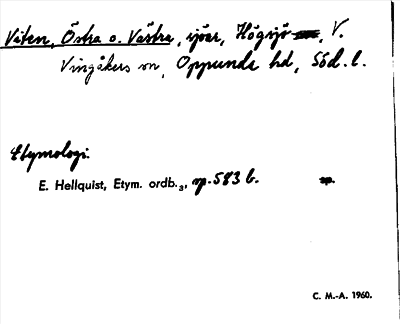 Viten, Östra o. Västra, sjöar, Högsjö, V.
Vingåkers sn, Oppunda hd, Söd. l.
Etymologi.
E. Hellquist, Etym. ordb.₃, sp. 583 b.
C. M.-A. 1960.